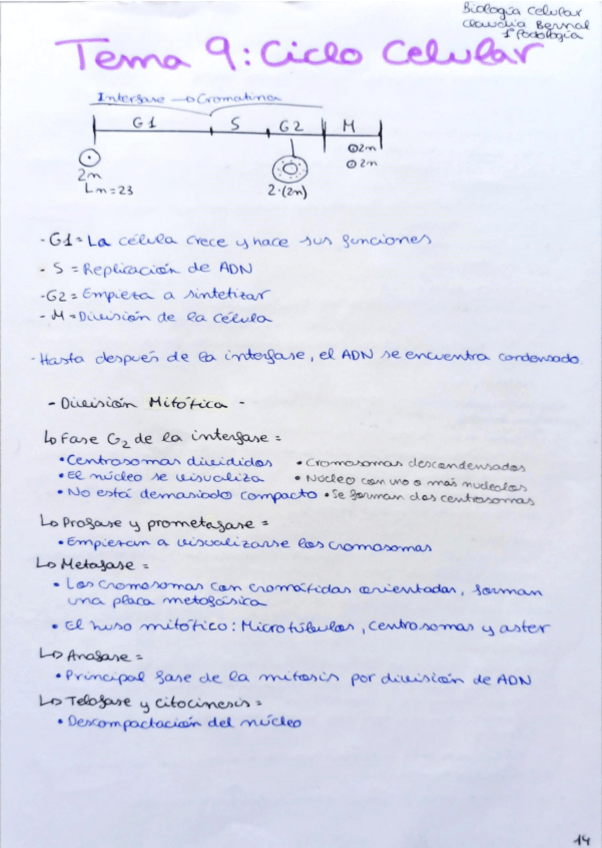 Biología Celular
Claudia Bernal
1º Podología
Tema 9: Ciclo Celular
Interfase → Cromatina
G1 S G2 M
2n
2n
2n
n=23
2·(2n)
- G1 = La célula crece y hace sus funciones
- S = Replicación de ADN
- G2 = Empieza a sintetizar
- M = División de la célula
- Hasta después de la interfase, el ADN se encuentra condensado.
- División Mitótica -
↳ Fase G2 de la interfase =
• Centrosomas divididos • Cromosomas descondensados
• El núcleo se visualiza • Núcleo con uno o más nucleolos
• No está demasiado compacto • Se forman dos centrosomas
↳ Profase y prometafase =
• Empiezan a visualizarse los cromosomas
↳ Metafase =
• Los cromosomas con cromátidas orientadas, forman
una placa metafásica
• El huso mitótico: Microtúbulos, centrosomas y aster
↳ Anafase =
• Principal fase de la mitosis por división de ADN
↳ Telofase y citocinesis =
• Descompactación del núcleo
14